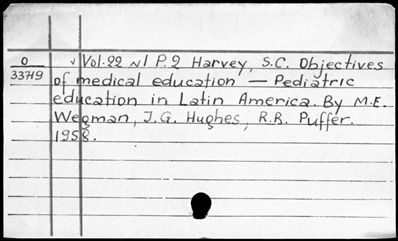 O √ Vol.22 N1 P.2 Harvey, S.C. Objectives
33719 of medical education — Pediatric
education in Latin America. By M.E.
Wegman, J.G. Hughes, R.R. Puffer.
1958.